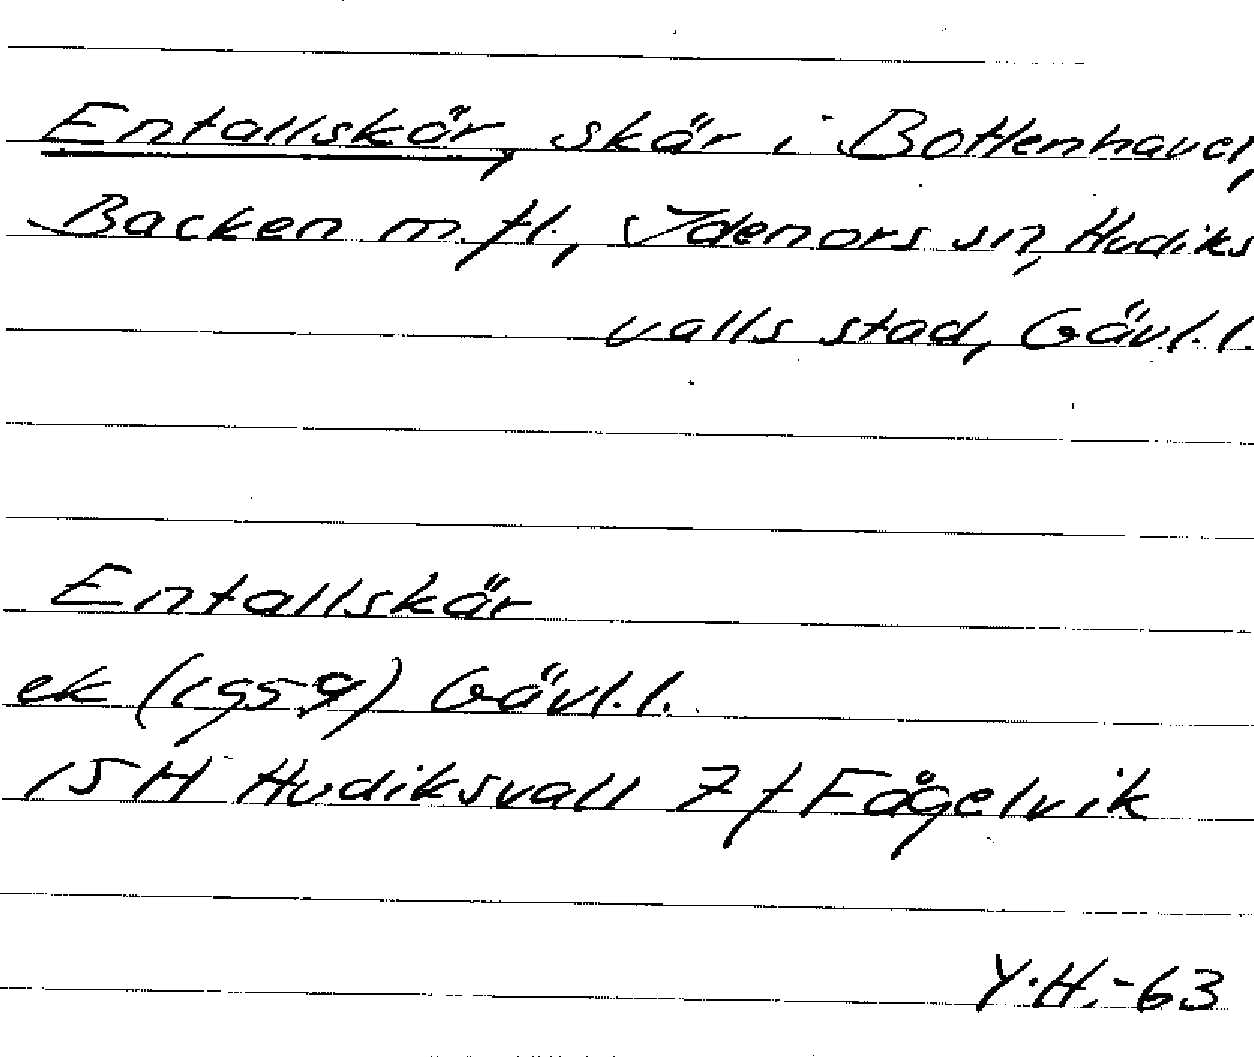 Entallskär, skär i Bottenhavet,
Backen m.fl., Idenors sn, Hudiks
valls stad, Gävl.l.
Entallskär
ek (1959) Gävl.l.
15H Hudiksvall 7f Fågelvik
Y.H.-63